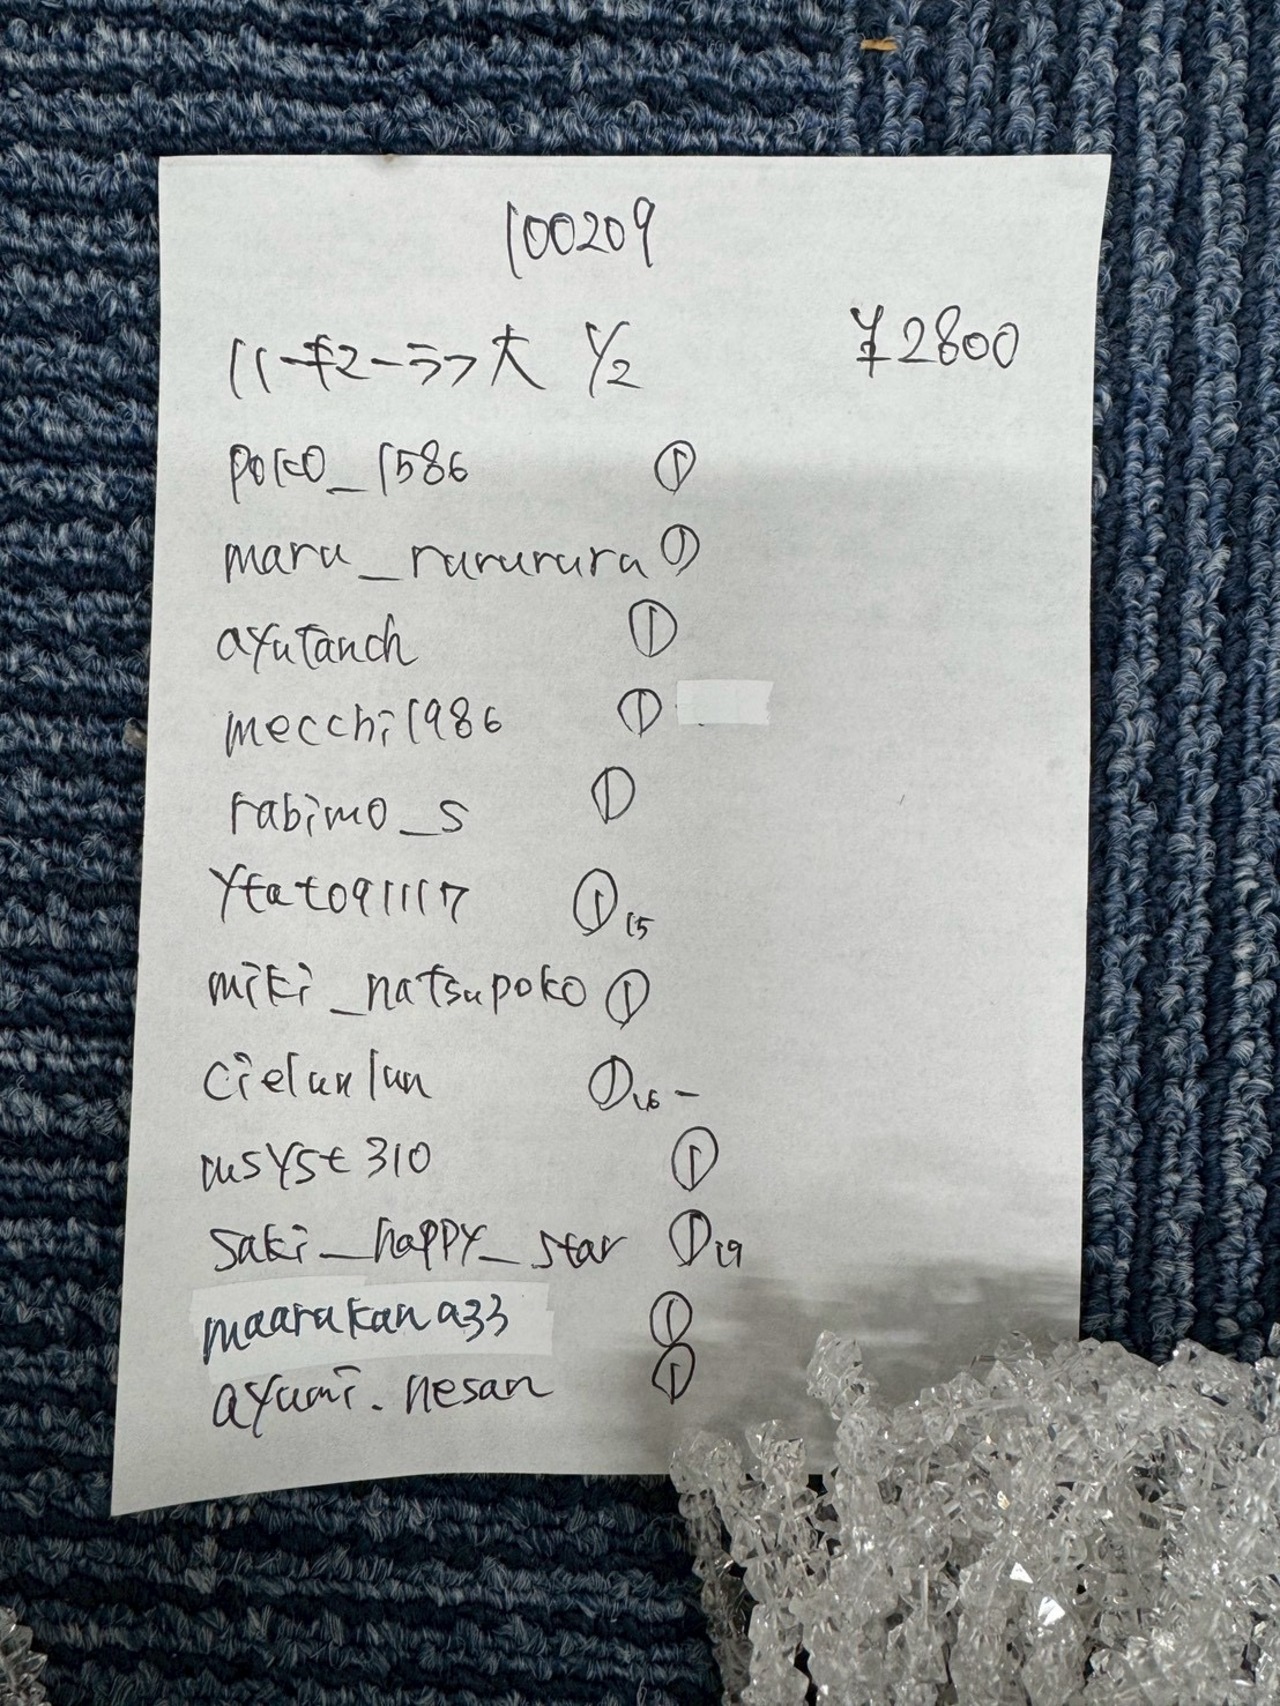 100209
ハーキマーラフ大 1/2 ¥2800
poko_1586 ①
maru_rurururu ①
ayutanch ①
mecchi1986 ①
rabimo_s ①
ytato91117 ① 15
miki_natsupoko ①
cielunlun ① 16 -
msyst310 ①
saki_happy_star ① 19
maarukana33 ①
ayumi.nesan ①